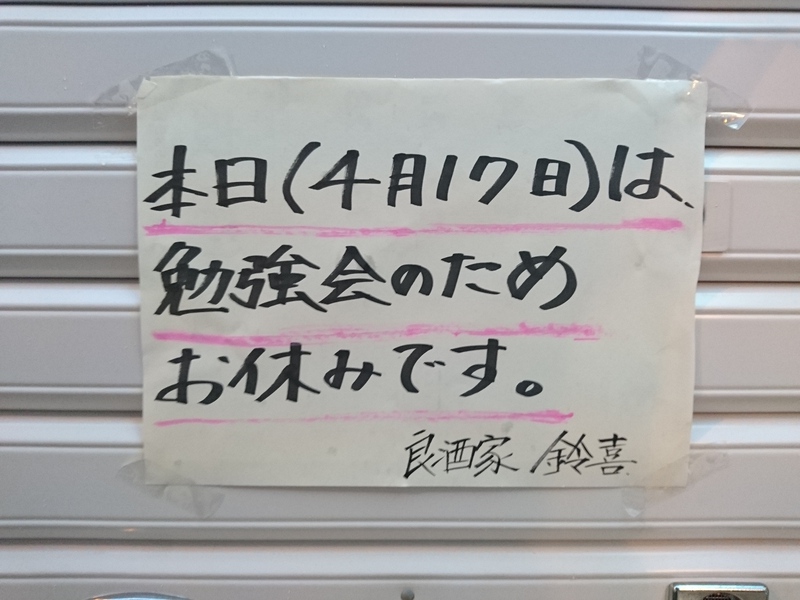 本日(4月17日)は、
勉強会のため
お休みです。
良酒家 鈴喜